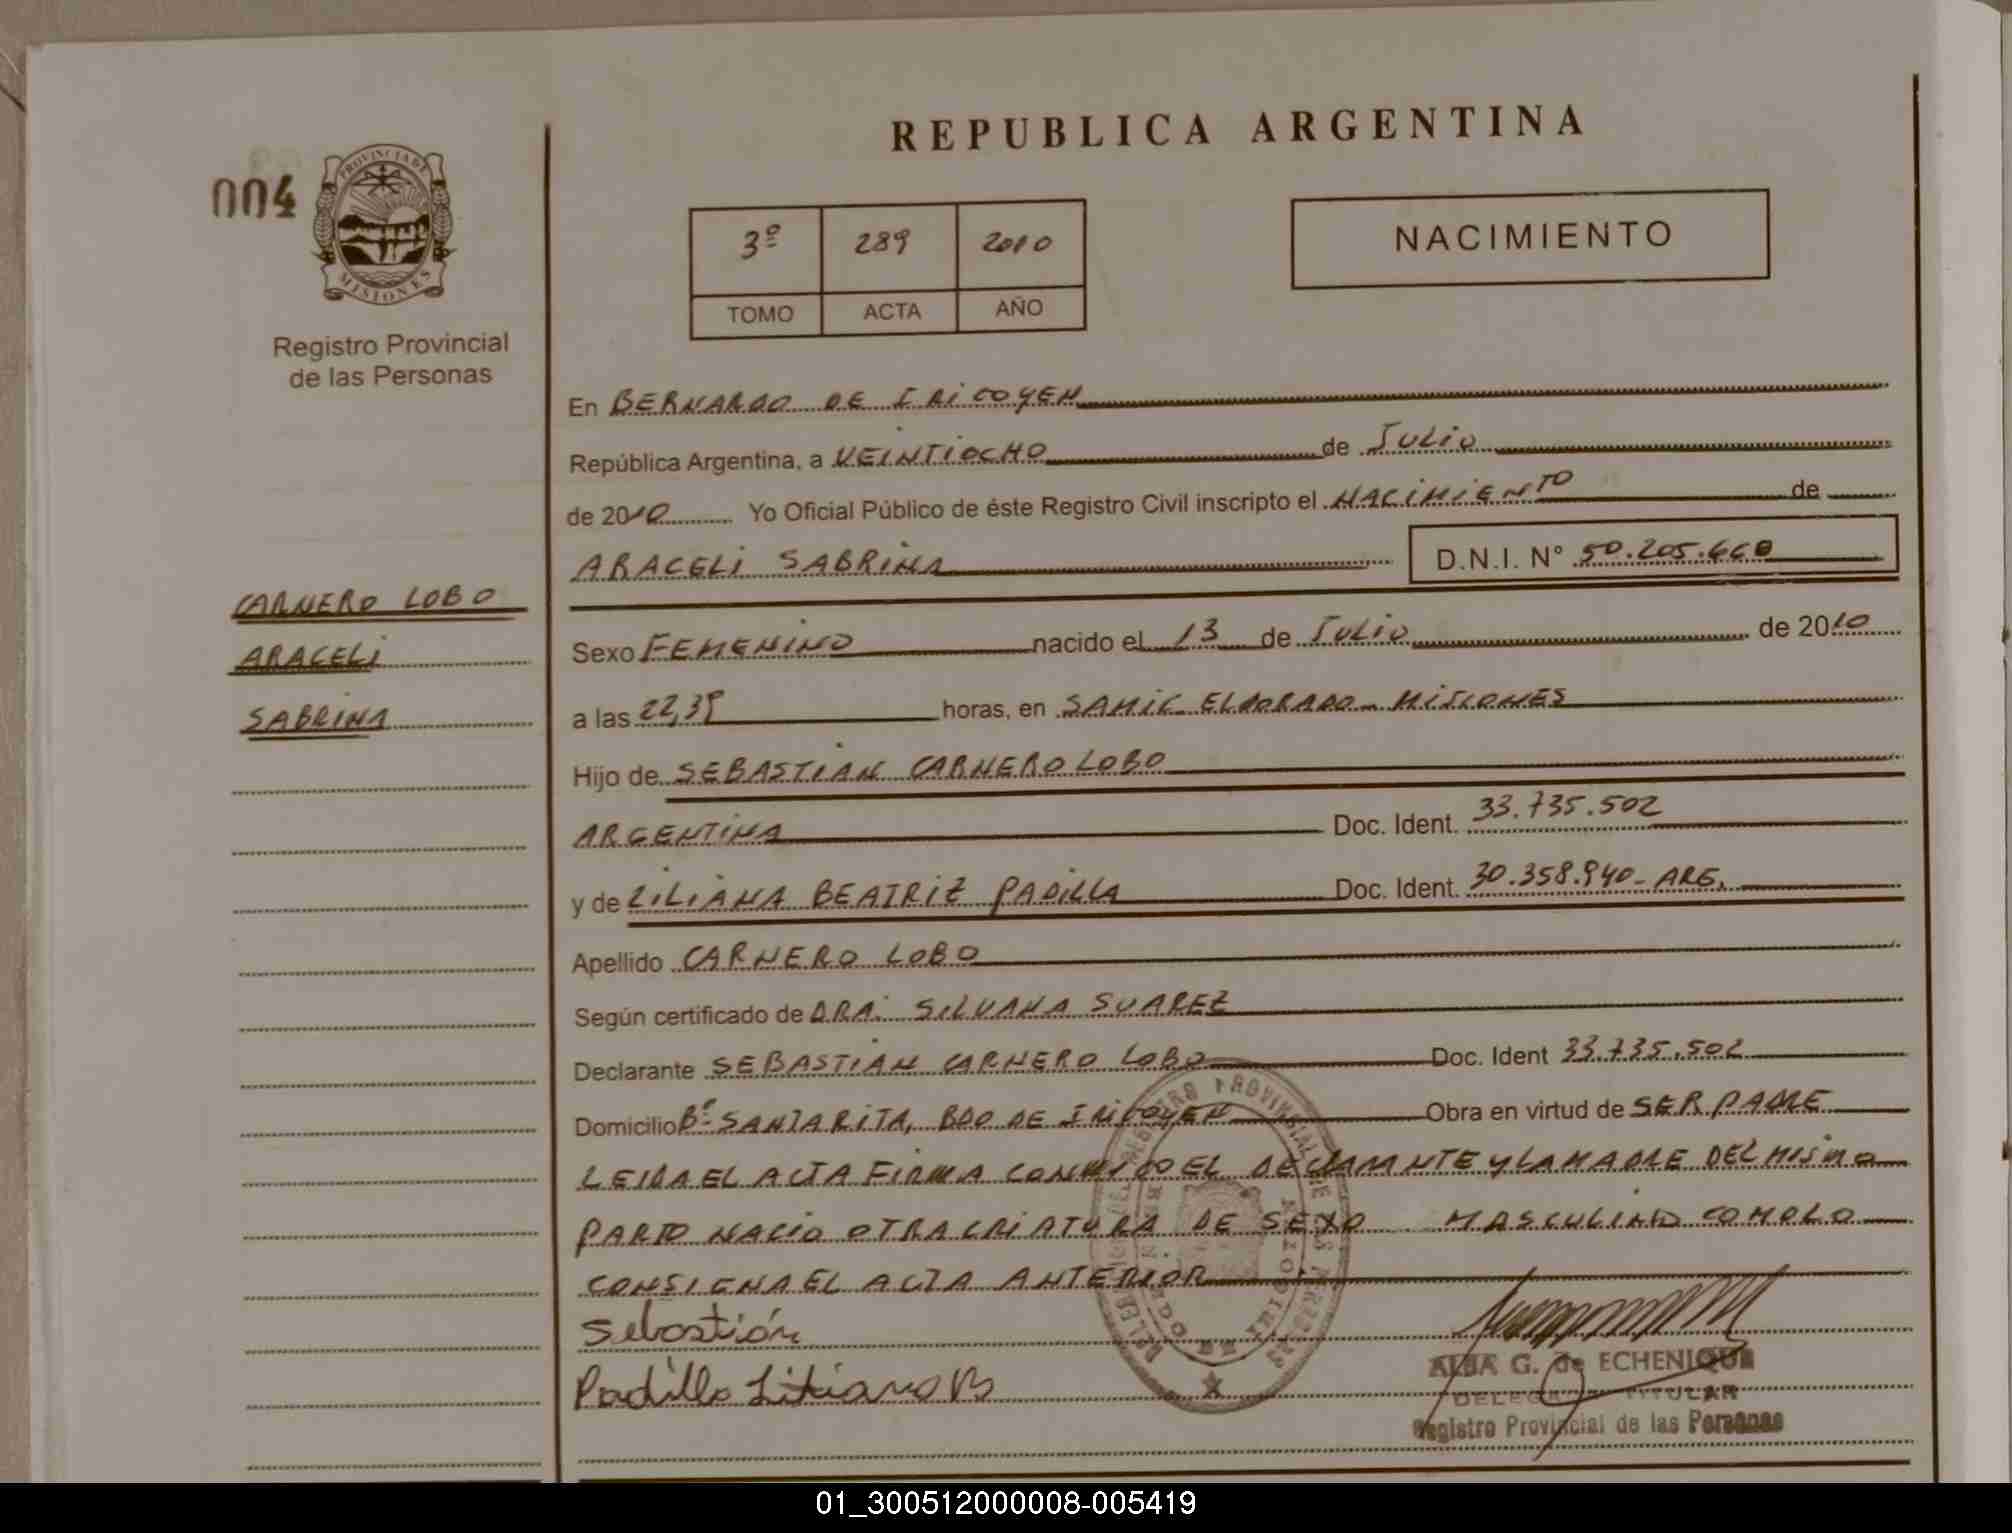 REPUBLICA ARGENTINA
004
PROVINCIA DE
MISIONES
Registro Provincial
de las Personas
3º 289 2010
TOMO ACTA AÑO
NACIMIENTO
En BERNARDO DE IRIGOYEN
República Argentina, a VEINTIOCHO de JULIO
de 2010 Yo Oficial Público de éste Registro Civil inscripto el NACIMIENTO de
ARACELI SABRINA D.N.I. N° 50.205.660
CARNERO LOBO
ARACELI
SABRINA
Sexo FEMENINO nacido el 13 de JULIO de 2010
a las 22,39 horas, en SAMIC ELDORADO - MISIONES
Hijo de SEBASTIAN CARNERO LOBO
ARGENTINA Doc. Ident. 33.735.502
y de LILIANA BEATRIZ PADILLA Doc. Ident. 30.358.940- ARG.
Apellido CARNERO LOBO
Según certificado de DRA. SILVANA SUAREZ
Declarante SEBASTIAN CARNERO LOBO Doc. Ident 33.735.502
Domicilio Bº SANTA RITA, BDO DE IRIGOYEN Obra en virtud de SER PADRE
LEIDA EL ACTA FIRMA CONMIGO EL DECLARANTE Y LA MADRE DEL MISMO
PARTO NACIO OTRA CRIATURA DE SEXO MASCULINO COMO LO
CONSIGNA EL ACTA ANTERIOR
Sebastián
Padilla Liliana B
ALBA G. de ECHENIQUE
DELEGADA TITULAR
Registro Provincial de las Personas
01_300512000008-005419